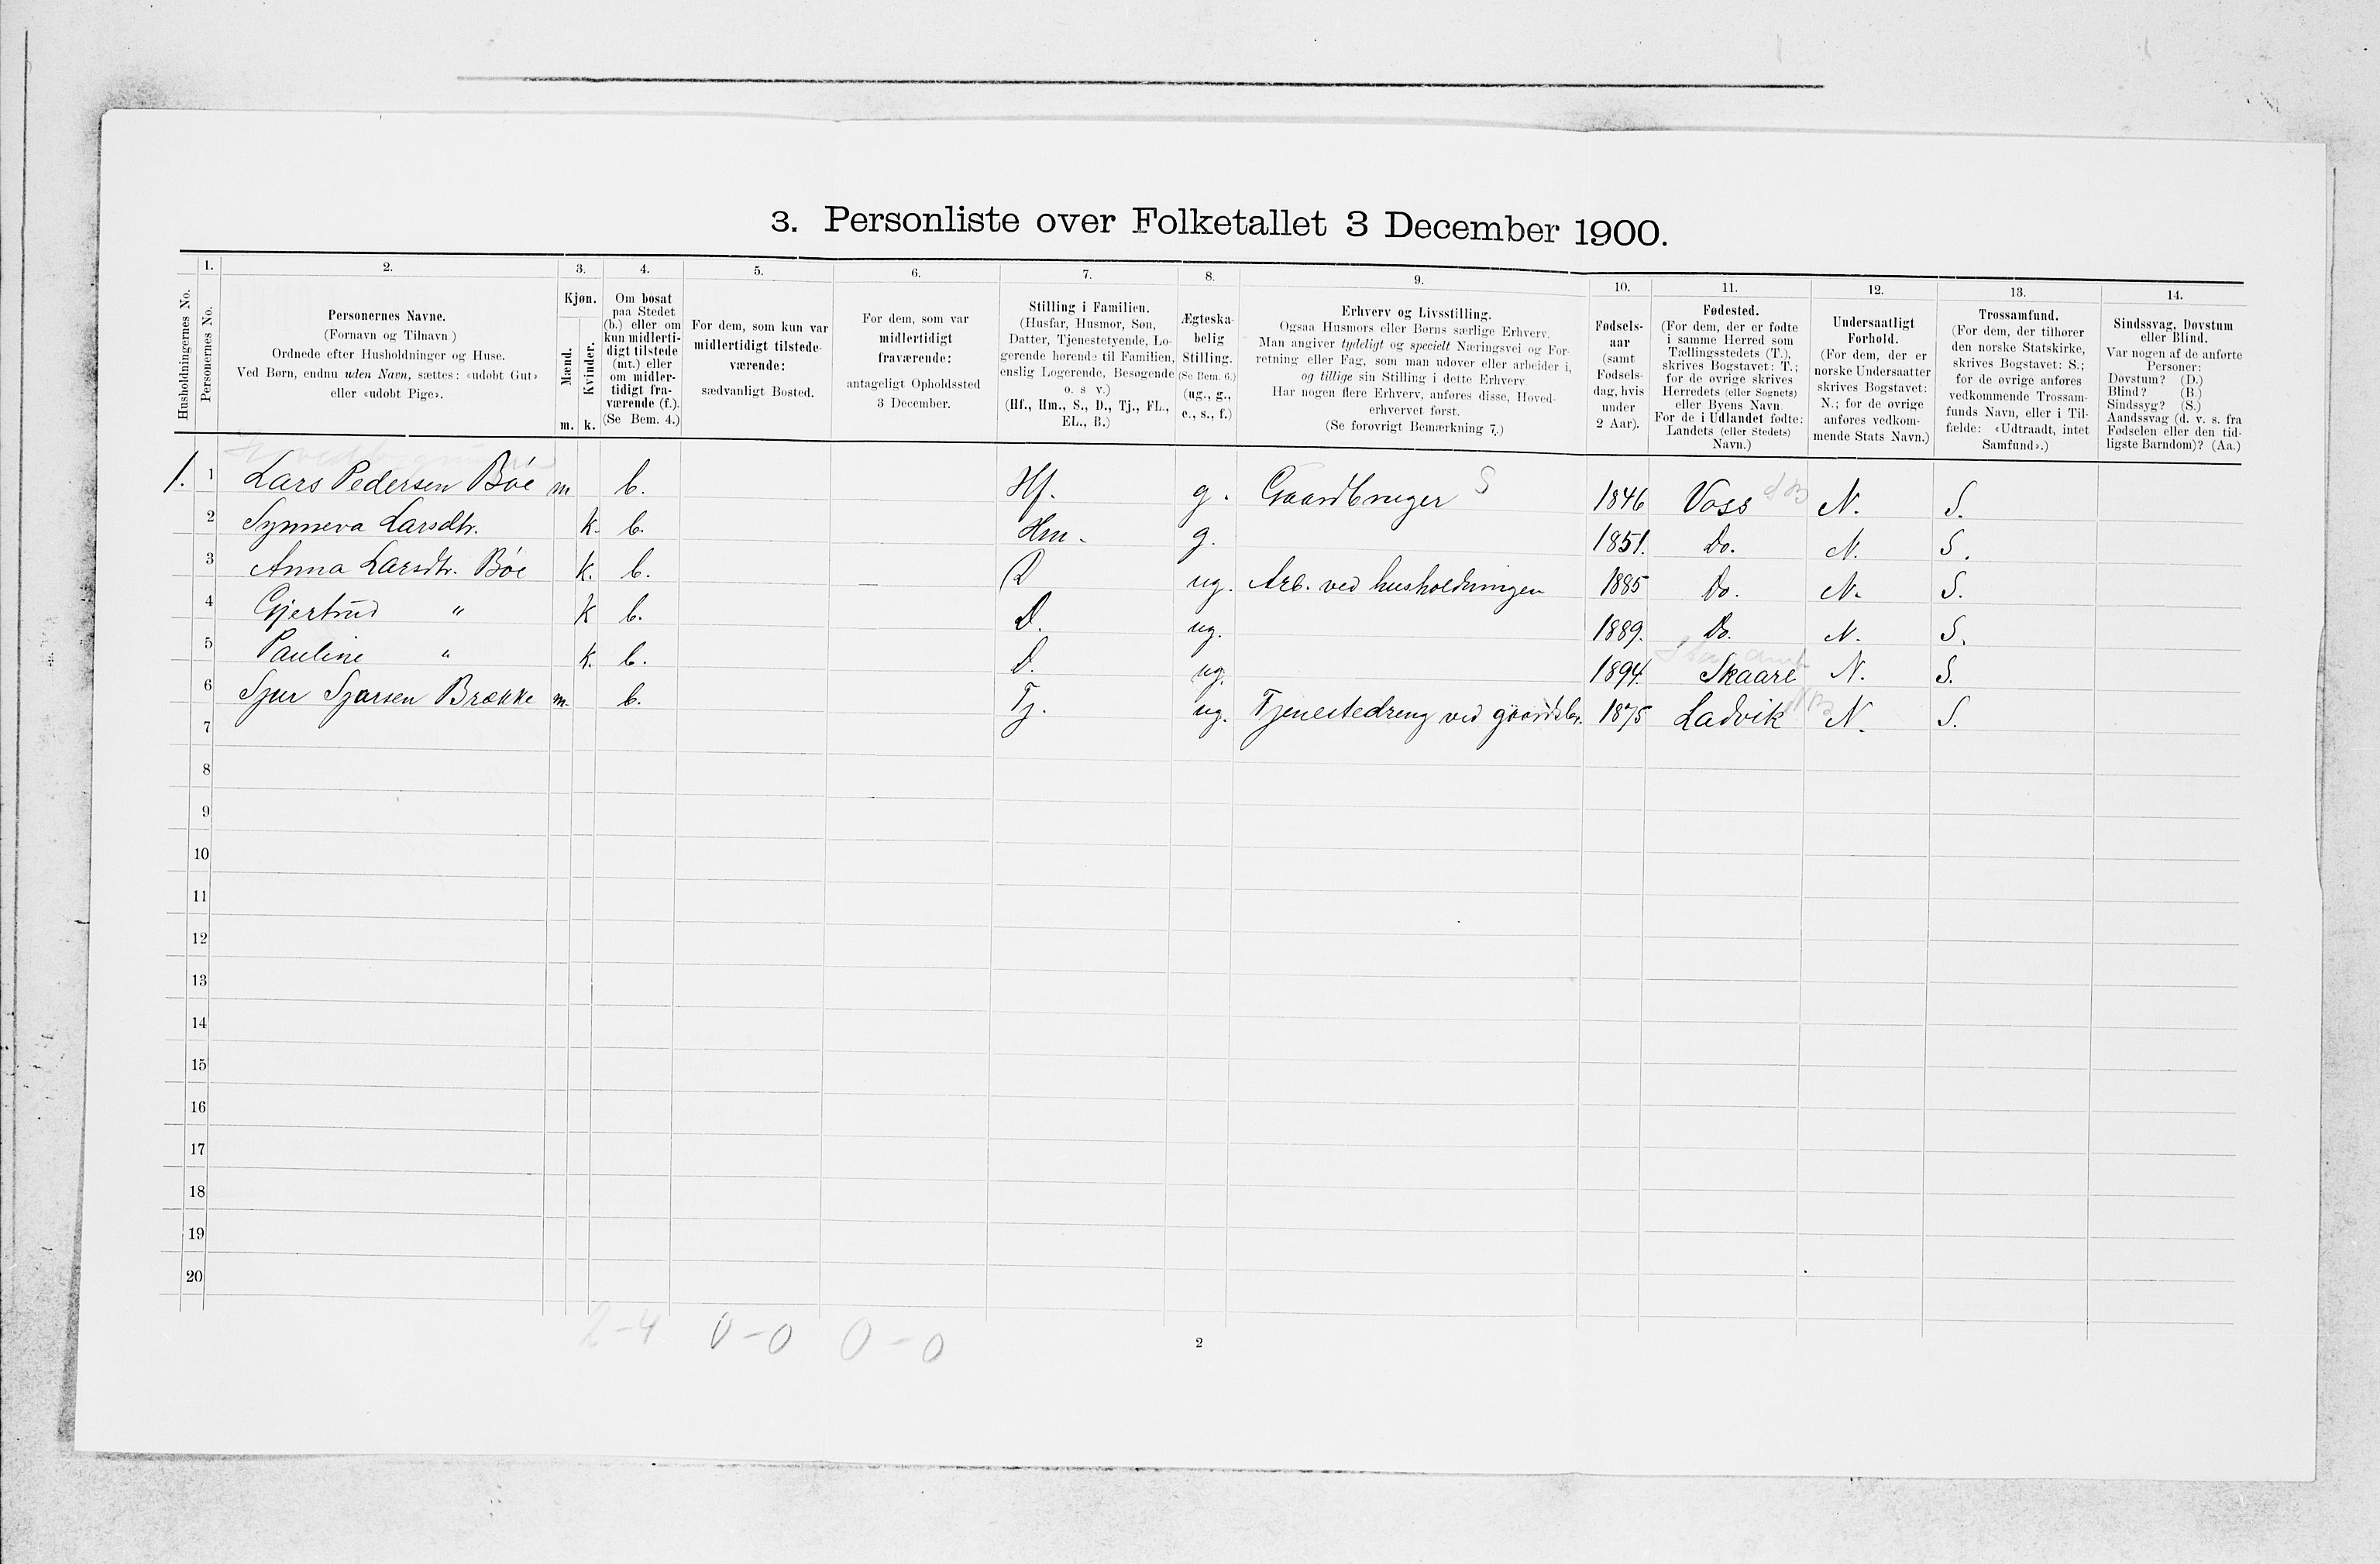 3. Personliste over Folketallet 3 December 1900.
1. 2. 3. 4. 5. 6. 7. 8. 9. 10. 11. 12. 13. 14.
Husholdningernes No.
Personernes No.
Personernes Navne.
(Fornavn og Tilnavn)
Ordnede efter Husholdninger og Huse.
Ved Børn, endnu uden Navn, sættes: «udobt Gut»
eller «udobt Pige».
Kjøn.
Mænd.
Kvinder.
m. k.
Om bosat
paa Stedet
(b.) eller om
kun midlerti-
digt tilstede
(mt.) eller
om midler-
tidigt fra-
værende (f.).
(Se Bem. 4.)
For dem, som kun var
midlertidigt tilstede-
værende:
sædvanligt Bosted.
For dem, som var
midlertidigt
fraværende:
antageligt Opholdssted
3 December.
Stilling i Familien.
(Husfar, Husmor, Søn,
Datter, Tjenestetyende, Lo-
gerende hørende til Familien,
enslig Logerende, Besøgende
o. s v.)
(Hf., Hm., S., D., Tj., FL.,
EL., B.)
Ægteska-
belig
Stilling.
(Se Bem. 6.)
(ug., g.,
e., s., f.)
Erhverv og Livsstilling.
Ogsaa Husmors eller Børns særlige Erhverv.
Man angiver tydeligt og specielt Næringsvei og For-
retning eller Fag, som man udøver eller arbeider i,
og tillige sin Stilling i dette Erhverv.
Har nogen flere Erhverv, anføres disse, Hoved-
erhvervet først.
(Se forøvrigt Bemærkning 7.)
Fødsels-
aar
(samt
Fødsels-
dag, hvis
under
2 Aar).
Fødested.
(For dem, der er fødte
i samme Herred som
Tællingsstedets (T.),
skrives Bogstavet: T.;
for de øvrige skrives
Herredets (eller Sognets)
eller Byens Navn.
For de i Udlandet fødte:
Landets (eller Stedets)
Navn.)
Undersaatligt
Forhold.
(For dem, der er
norske Undersaatter
skrives Bogstavet:
N.; for de øvrige
anføres vedkom-
mende Stats Navn.)
Trossamfund.
(For dem, der tilhører
den norske Statskirke,
skrives Bogstavet: S.;
for de øvrige anføres
vedkommende Trossam-
funds Navn, eller i Til-
fælde: «Udtraadt, intet
Samfund».)
Sindssvag, Døvstum
eller Blind.
Var nogen af de anførte
Personer:
Døvstum? (D.)
Blind? (B.)
Sindssyg? (S.)
Aandssvag (d. v. s. fra
Fødselen eller den tid-
ligste Barndom)? (Aa.)
1. 1 Lars Pedersen Bøe m b. Hf. g. Gaardbruger S 1846 Voss SB N. S.
2 Synneva Larsdtr. k. b. Hm. g. 1851. Do. N. S.
3 Anna Larsdtr. Bøe k. b. D ug. Arb. ved husholdningen 1885 Do. N. S.
4 Gjertrud " k b. D. ug. 1889. Do. N. S.
5 Pauline " k. b. D. ug. 1894. Skaare N. S.
6 Sjur Sjursen Brække m. b. Tj. ug. Tjenestedreng ved gaardsbr. 1875 Ladvik NB N. S.
7
8
9
10
11
12
13
14
15
16
17
18
19
20
2-4 0-0 0-0
2